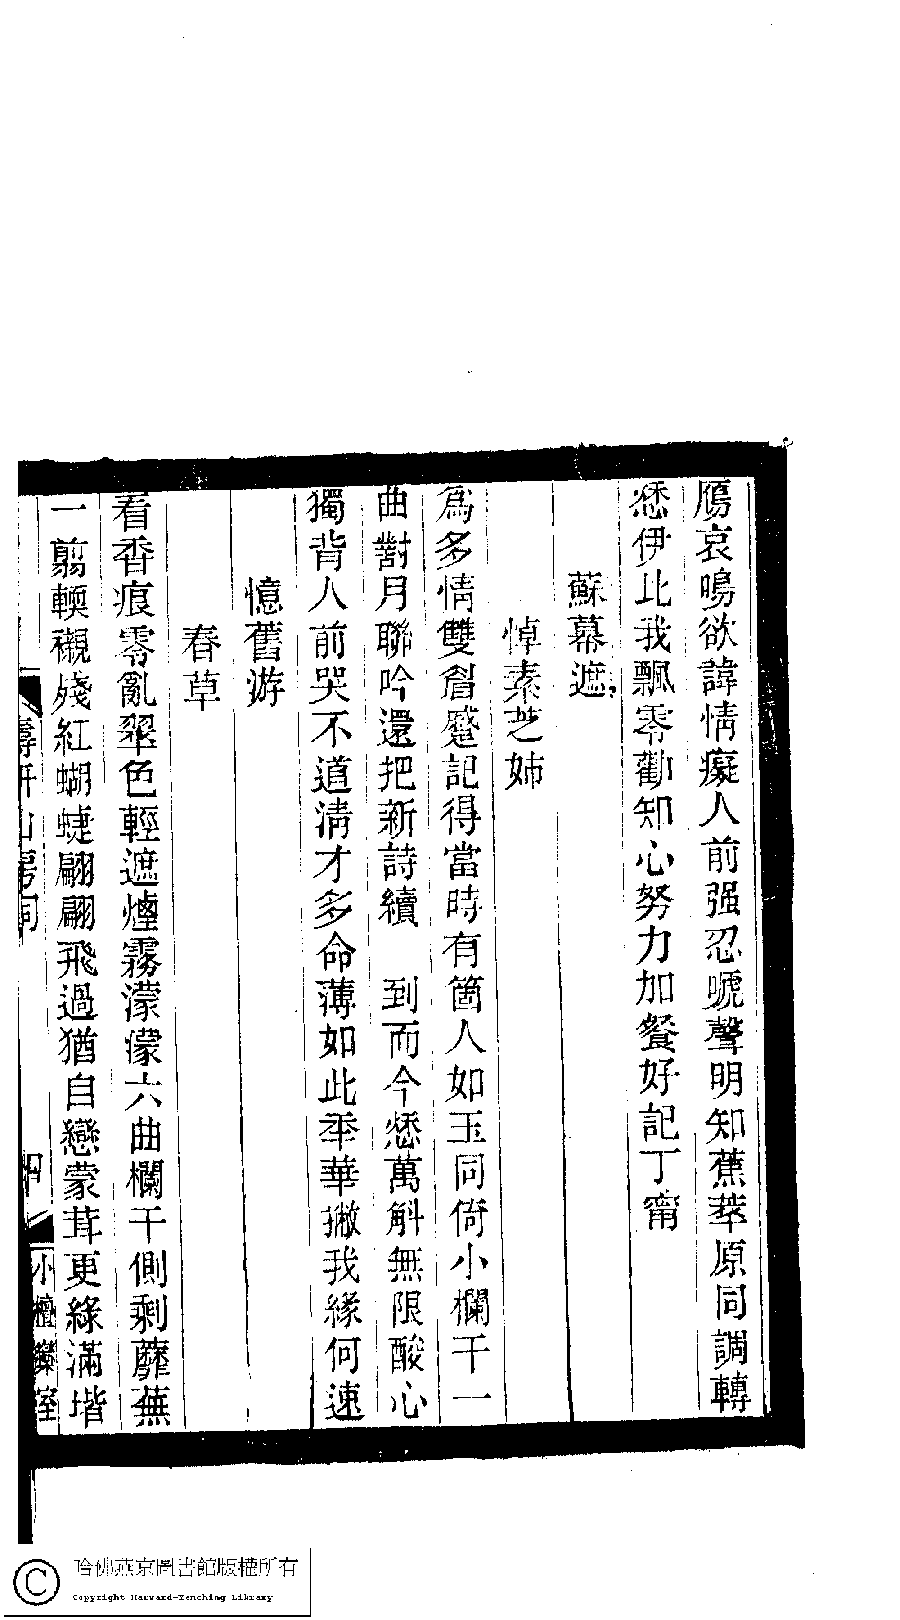 鴈哀鳴欲諱情癡人前强忍唬聲明知蕉萃原同調轉
愁伊比我飄零勸知心努力加餐好記丁甯
蘇幕遮
悼素芝姊
爲多情雙眉蹙記得當時有箇人如玉同倚小欄干一
曲對月聯吟還把新詩續　到而今愁萬斛無限酸心
獨背人前哭不道淸才多命薄如此年華撇我緣何速
憶舊游
春草
看香痕零亂翠色輕遮煙霧濛濛六曲欄干側剩蘼蕪
一翦輭襯殘紅蝴蜨翩翩飛過猶自戀蒙茸更綠滿堦
山房詞
四
小檀欒室
哈佛燕京圖書館版權所有
Copyright Harvard-Yenching Library